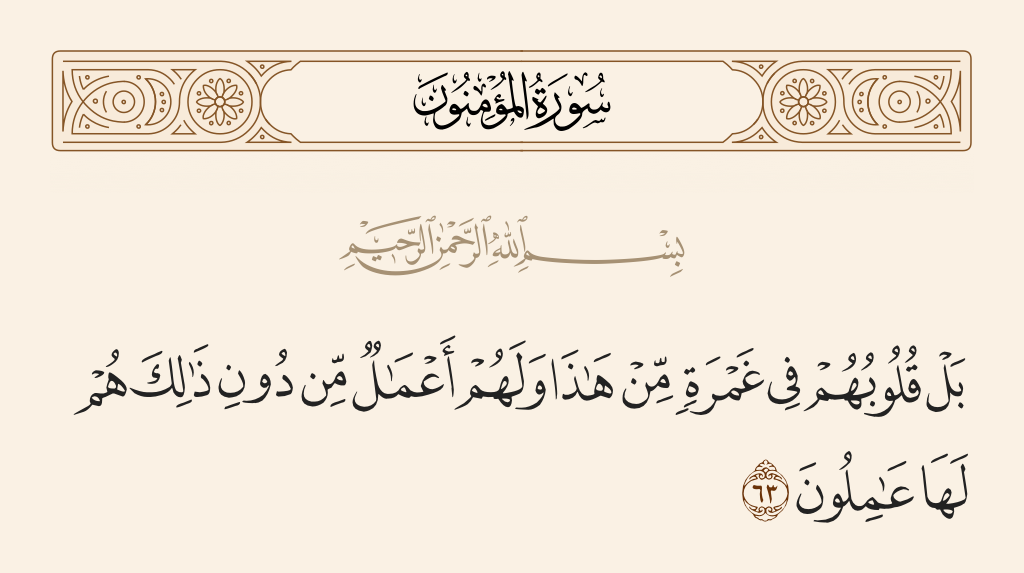 سُورَةُ الْمُؤْمِنُونَ
بِسْمِ ٱللَّهِ ٱلرَّحْمَٰنِ ٱلرَّحِيمِ
بَلْ قُلُوبُهُمْ فِى غَمْرَةٍ مِّنْ هَـٰذَا وَلَهُمْ أَعْمَـٰلٌ مِّن دُونِ ذَٰلِكَ هُمْ
لَهَا عَـٰمِلُونَ ٦٣